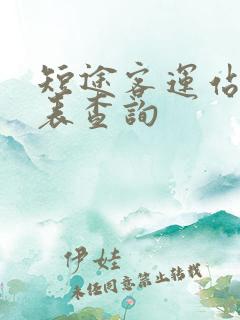 短途客运站
表查詢
伊娃
未经同意禁止转载